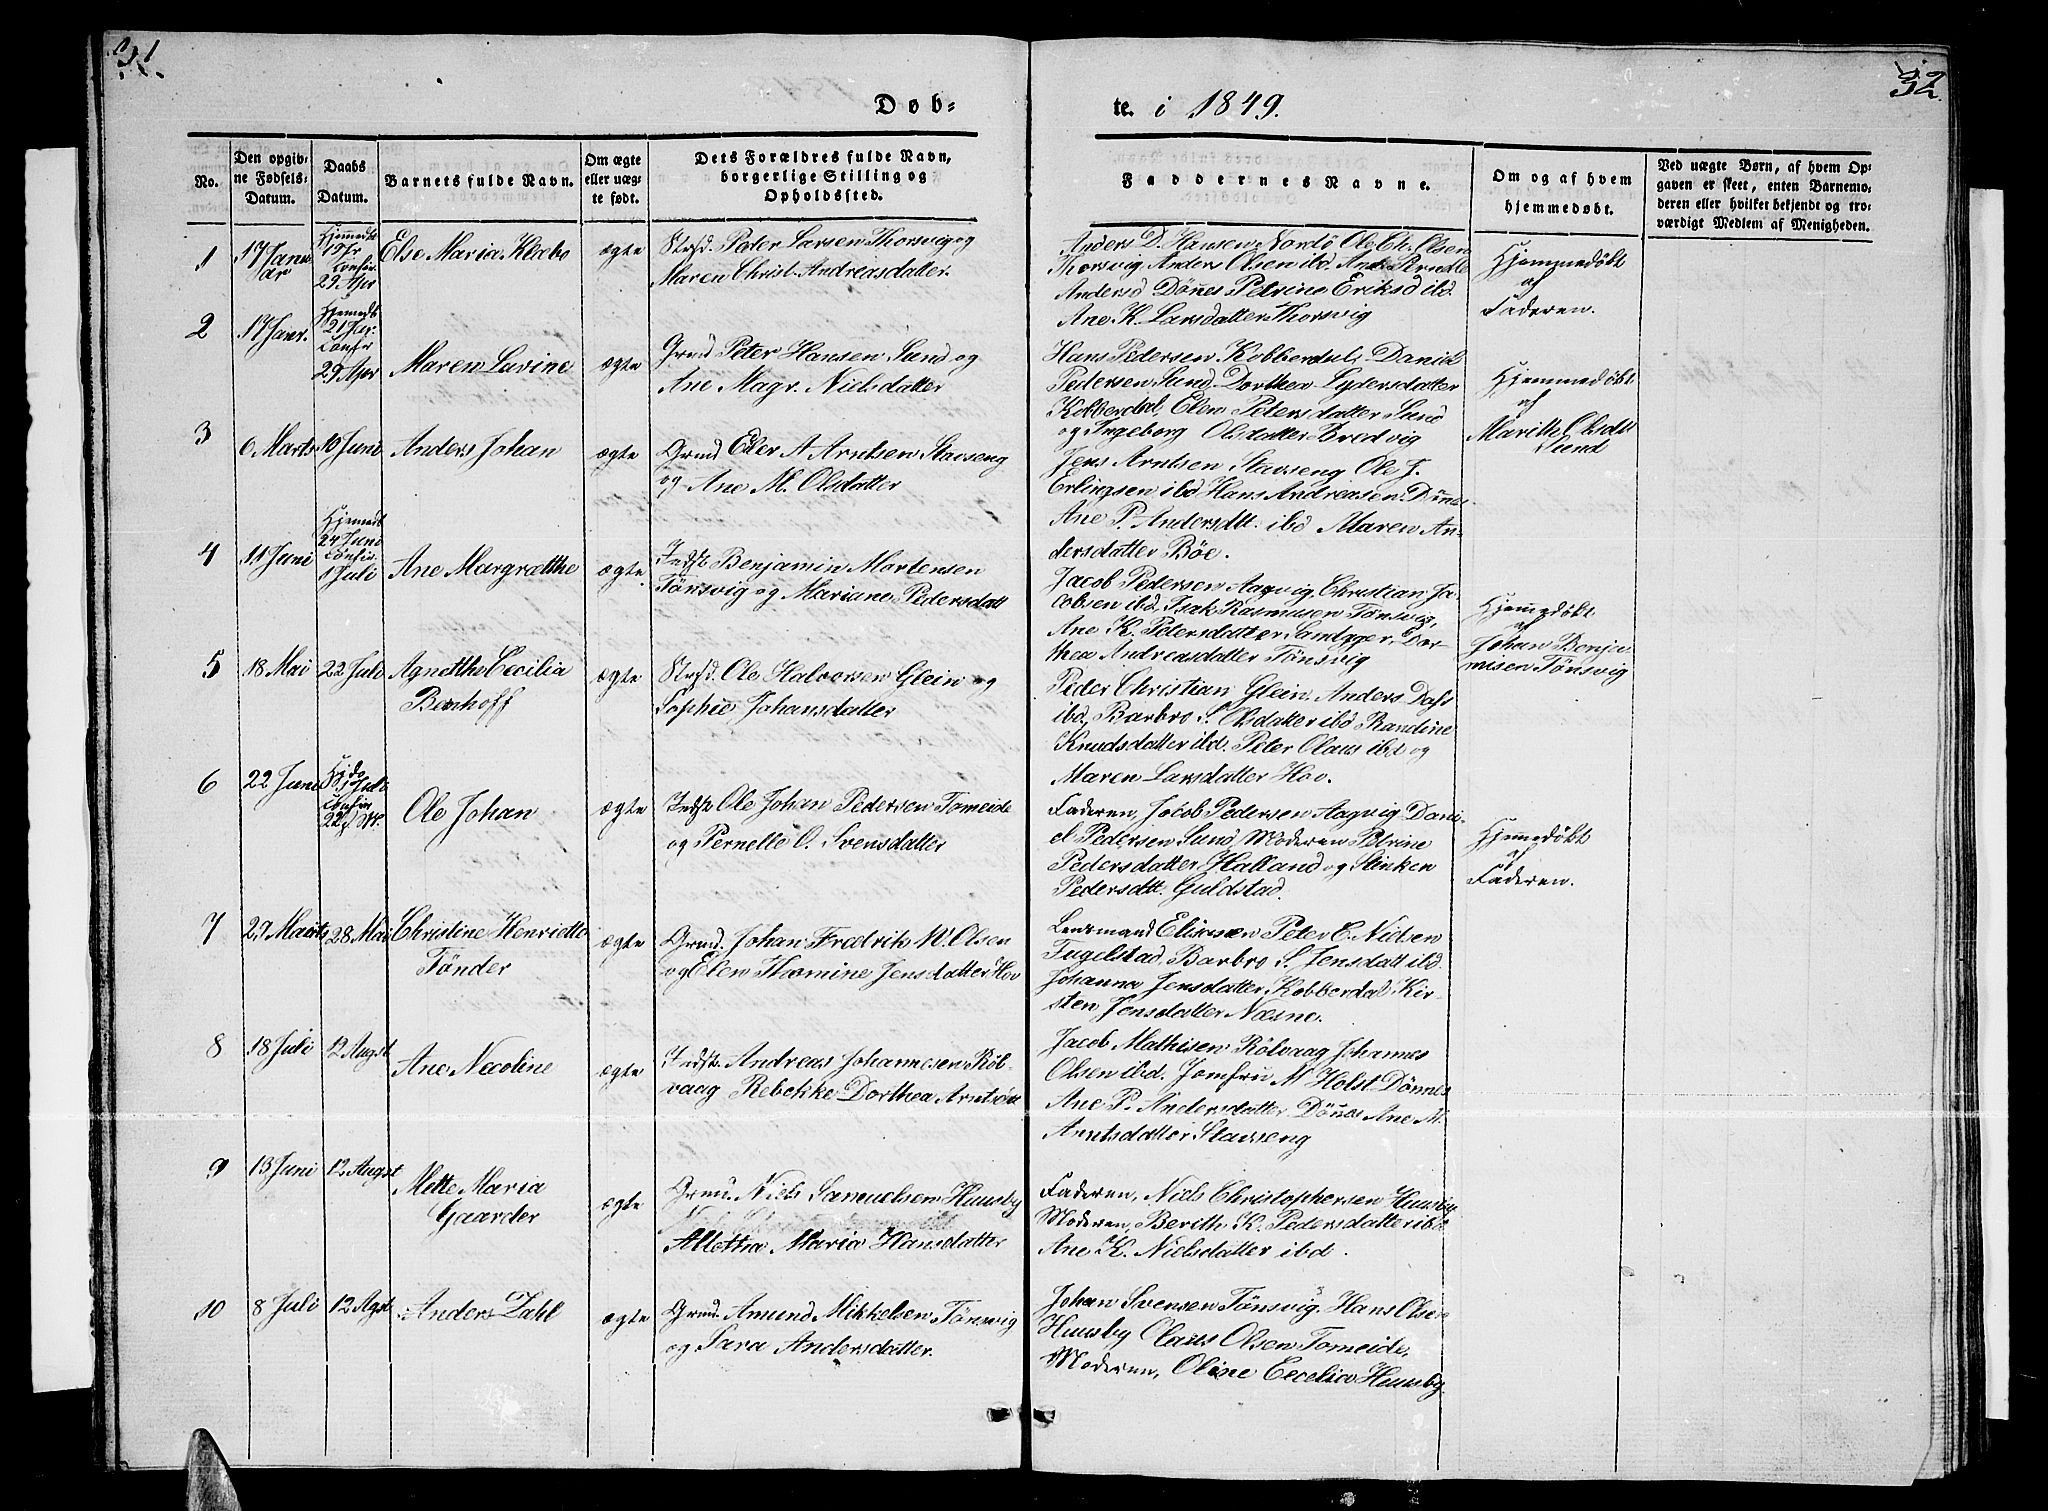 31.
32.
Døb-
te. i 1849.
No.
Den opgiv-
ne Fødsels-
Datum.
Daabs
Datum.
Barnets fulde Navn.
Om ægte
eller uæg-
te født.
Dets Forældres fulde Navn,
borgerlige Stilling og
Opholdssted.
Faddernes Navne.
Om og af hvem
hjemmedøbt.
Ved uægte Børn, af hvem Op-
gaven er skeet, enten Barnemo-
deren eller hvilket bekjendt og tro-
værdigt Medlem af Menigheden.
1
17 Janu
ar
Hjemmedb
19 Jr
confir.
29 Apr
Else Maria Klæbo
ægte
Strsd. Peter Larsen Thorsvig og
Maren Christ. Andreasdatter.
Anders D. Hansen Nordö Ole Ch. Olsen
Thorsvig, Anders Olsen ibd.
Andersd Dönnes Petrine Eriksd ibd.
Ane K. Larsdatter Thorsvig
Hjemmedöbt
af
Faderen.
2
17 Janr.
Hjemedb
21 Jar.
Confr
29 Apr
Maren Lavine
ægte
Grmd Peter Hansen Sund og
Ane Magr. Nielsdatter
Hans Pedersen Kobberdal Daniel
Pedersen Sund, Dorthea Lydersdatter
Kobberdal, Elen Petersdatter Sund
og Ingeborg Olsdatter Bredvig
Hjemmedöbt
af
Marith Olsdtt
Sund
3
6 Marts
10 Juni
Anders Johan
ægte
Grmd Eder A Arntsen Stavseng
og Ane M. Olsdatter
Jens Arntsen Stavseng Ole J.
Erlingsen ibd Hans Andreasen Dönnes
Ane P. Andersdtt. ibd Maren An-
dersdatter Böe.
4
11 Juni
Hjemedb
24 Juni
Confir.
1 Juli
Ane Margrætthe
ægte
Indst Benjamin Mortensen
Tönsvig og Mariane Pedersdatt
Jacob Pedersen Aagvig, Christian Ja-
cobsen ibd, Isak Rasmusen Tönsvig,
Ane K. Petersdatter Samtgger, Dor-
thea Andreasdatter Tönsvig
Hjemmedöbt
af
Johan Benja
misen Tönsvig
5
18 Mai
22 Juli
Agnetthe Cecilia
Benhoff
ægte
Strsd. Ole Halvorsen Glein og
Sophie Johansdatter
Peder Christian Glein, Anders Dahl
ibd, Barbro S. Olsdatter ibd Randine
Knudsdatter ibd. Peter Olaus ibd og
Maren Larsdatter Hov.
6
22 Juni
1 Juli
Confir
22 f. M.
Ole Johan
ægte
Indst Ole Johan Pedersen Tomeide
og Pernelle O. Svensdatter
Faderen, Jacob Pedersen Aagvig Dani-
el Pedersen Sund, Moderen Petrine
Pedersdatter Halland og Stinken
Pedersdtt. Guldstad.
Hjemmedöbt
af
Faderen.
7
27 Marts
28 Mai
Christine Henriette
Tønder
ægte
Grmd. Johan Fredrik W. Olsen
og Elen Thomine Jensdatter Hov
Lensmand Elissen Peter C. Nielsen
Fugelstad, Barbro S. Jensdatt ibd.
Johanna Jensdatter Kobberdal Kir-
sten Jensdatter Næsne.
8
18 Juli
12 Augst
Ane Necoline
ægte
Indst. Andreas Johannesen Röl-
vaag Rebekke Dorthea Arntsdtt
Jacob Mathisen Rölvaag Johannes
Olsen ibd. Jomfru M Holst Dönnes
Ane P. Andersdatter Dönnes Ane M.
Arntsdatter Stavseng
9
13 Juni
12 Augst
Mette Maria
Gaarder
ægte
Grmd. Niels Samuelsen Huusby
Alletha Maria Hansdatter
Faderen, Niels Christophersen Huusby
Moderen, Berith K. Pedersdatter ibd
Ane K. Nielsdatter ibd.
10
8 Juli
12 Agst
Anders Zahl
ægte
Grmd. Amund Mikkelsen Tönsvig
og Sara Andersdatter.
Johan Svensen Tönsvig. Hans Olsen
Huusby Olaus Olsen Tomeide,
Moderen, Oline Cecelia Huusby.